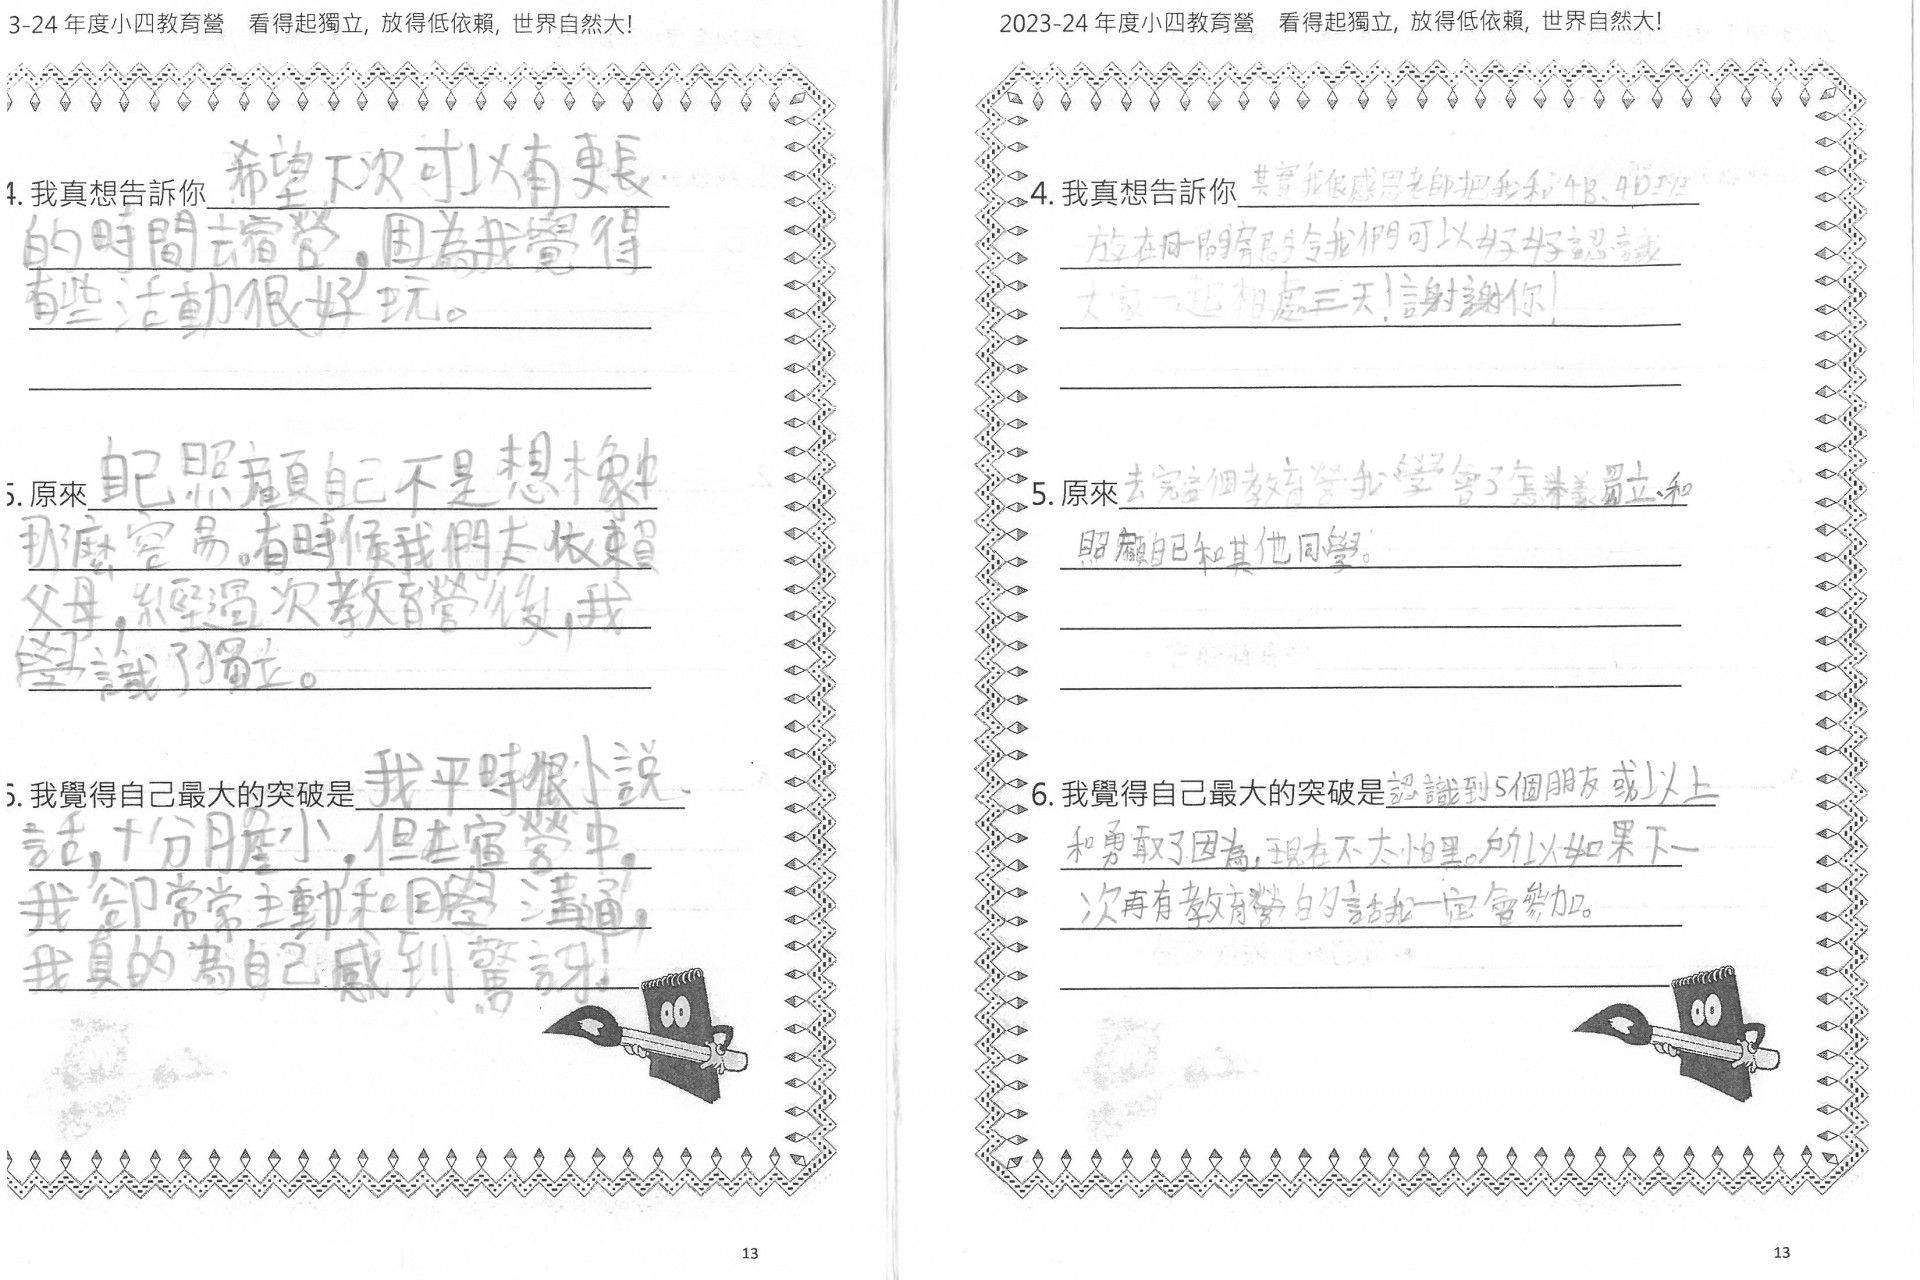 3-24 年度小四教育營 看得起獨立, 放得低依賴, 世界自然大!
4. 我真想告訴你 希望下次可以有更長
的時間去宿營，因為我覺得
有些活動很好玩。
5. 原來 自己照顧自己不是想橡中
那麼容易。有時候我們太依賴
父母，經過次教育營後，我
學識了獨立。
5. 我覺得自己最大的突破是 我平時很小說
話，十分膽小，但在宿營中，
我卻常常主動和同學溝通，
我真的為自己感到驚訝！
13
2023-24 年度小四教育營 看得起獨立, 放得低依賴, 世界自然大!
4. 我真想告訴你 其實我很感恩老師把我和4B、4D班
放在同一間房間令我們可以好好認識
大家一起相處三天！謝謝你！
5. 原來 去完這個教育營我學會了怎樣獨立、和
照顧自己和其他同學。
6. 我覺得自己最大的突破是 認識到5個朋友或以上
和勇敢了因為，現在不太怕黑。所以如果下一
次再有教育營的話我一定會參加。
13